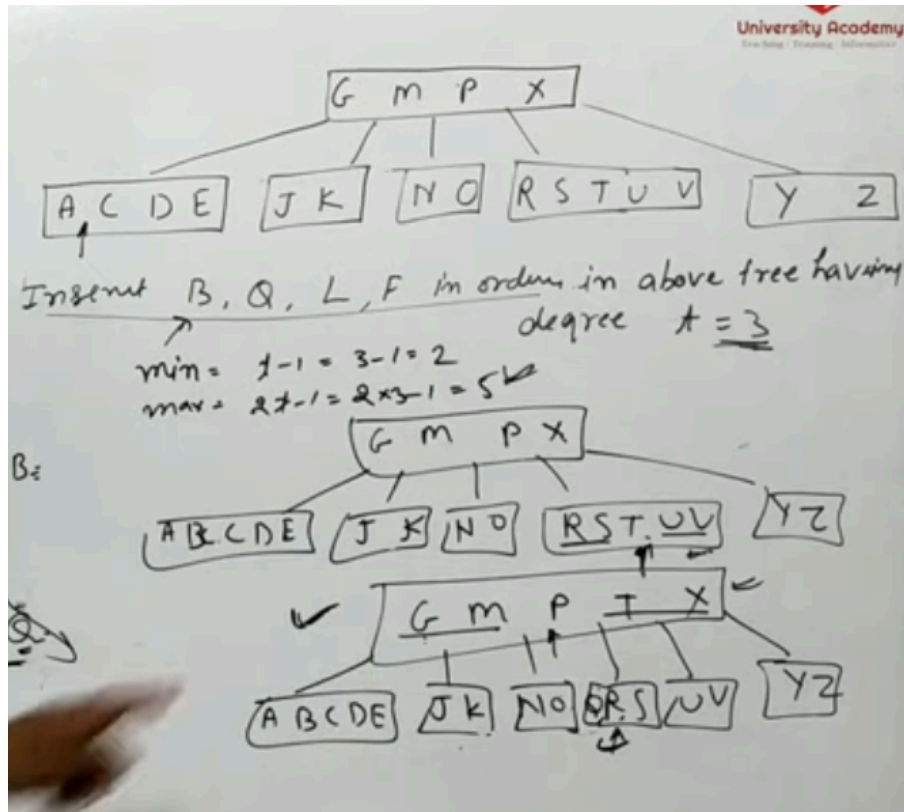 University Academy
Teaching | Training | Informative
G M P X
A C D E J K N O R S T U V Y Z
Insert B, Q, L, F in order in above tree having
degree t = 3
min = t-1 = 3-1 = 2
max = 2t-1 = 2x3-1 = 5
G M P X
B:
A B C D E J K N O R S T U V Y Z
G M P T X
Q:
A B C D E J K N O Q R S U V Y Z